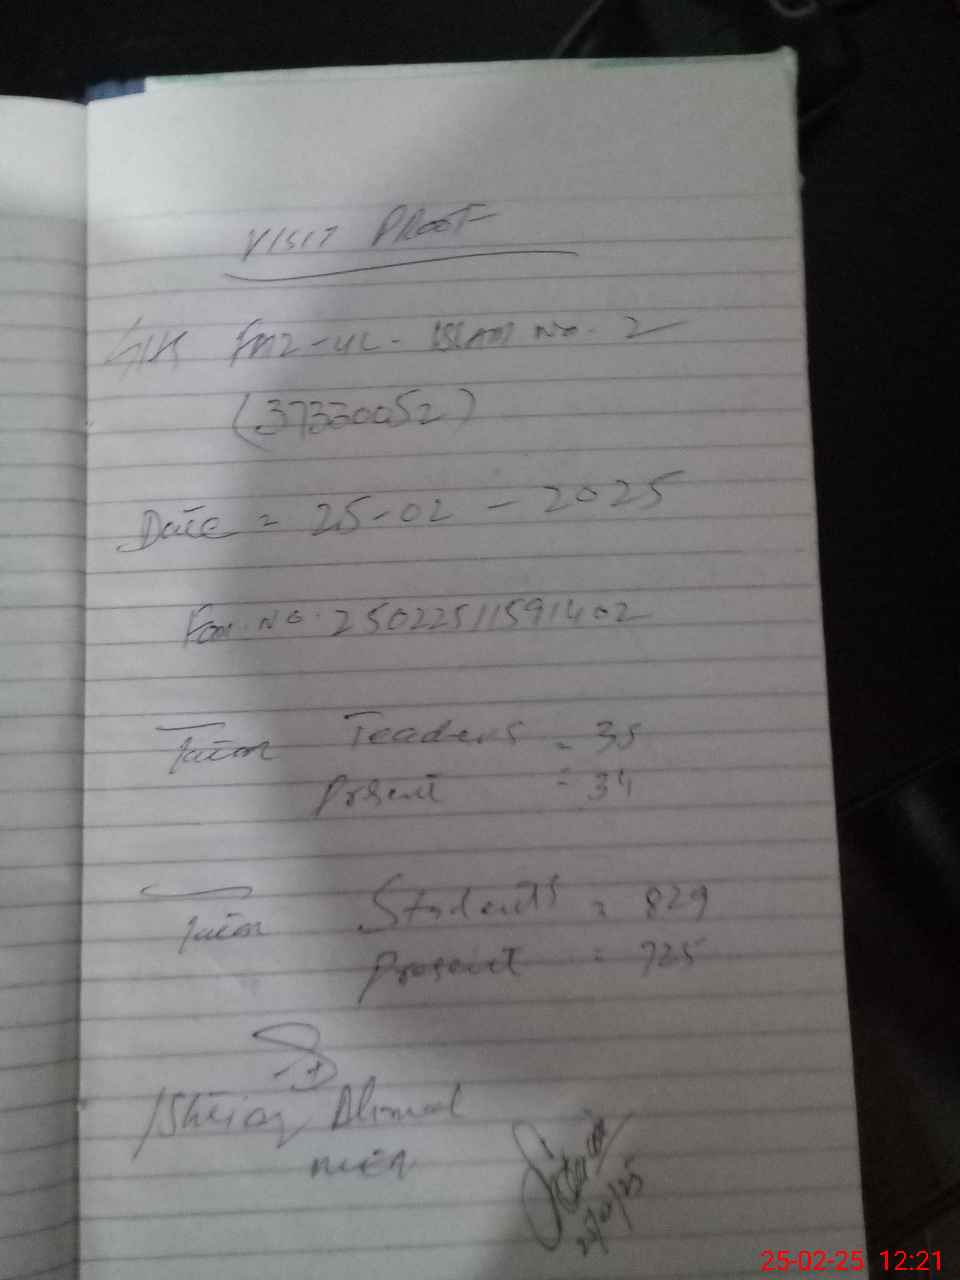 VISIT PROOF
FAIZ-UL-ISLAM No. 2
(37330052)
Date = 25-02-2025
Form. No. 25022511591402
Total Teachers = 35
Present = 34
Total Students = 829
Present = 725
Ahmad
MEA
25-02-25 12:21